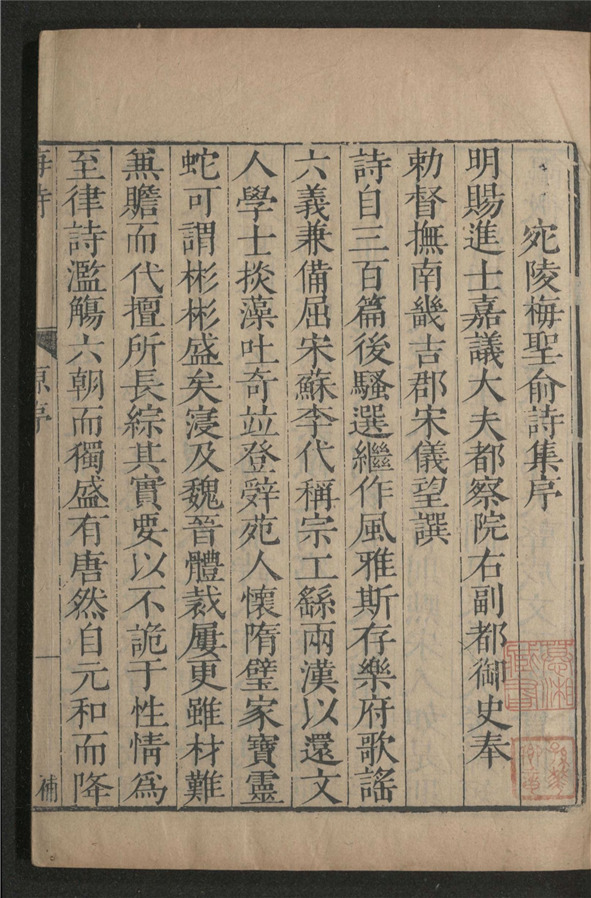 宛陵梅聖俞詩集序
明賜進士嘉議大夫都察院右副都御史奉
勅督撫南畿吉郡宋儀望譔
詩自三百篇後騷選繼作風雅斯存樂府歌謠
六義兼備屈宋蘇李代稱宗工繇兩漢以還文
人學士掞藻吐奇竝登辤苑人懷隋璧家寶靈
蛇可謂彬彬盛矣寖及魏晉體裁屢更雖材難
兼贍而代擅所長綜其實要以不詭于性情爲
至律詩濫觴六朝而獨盛有唐然自元和而降
原序
一
補